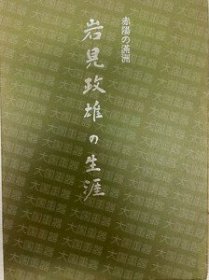 赤陽の満洲
岩見政雄の生涯